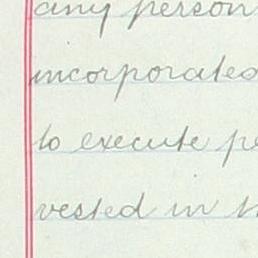 any person
incorporated
to execute pe
vested in